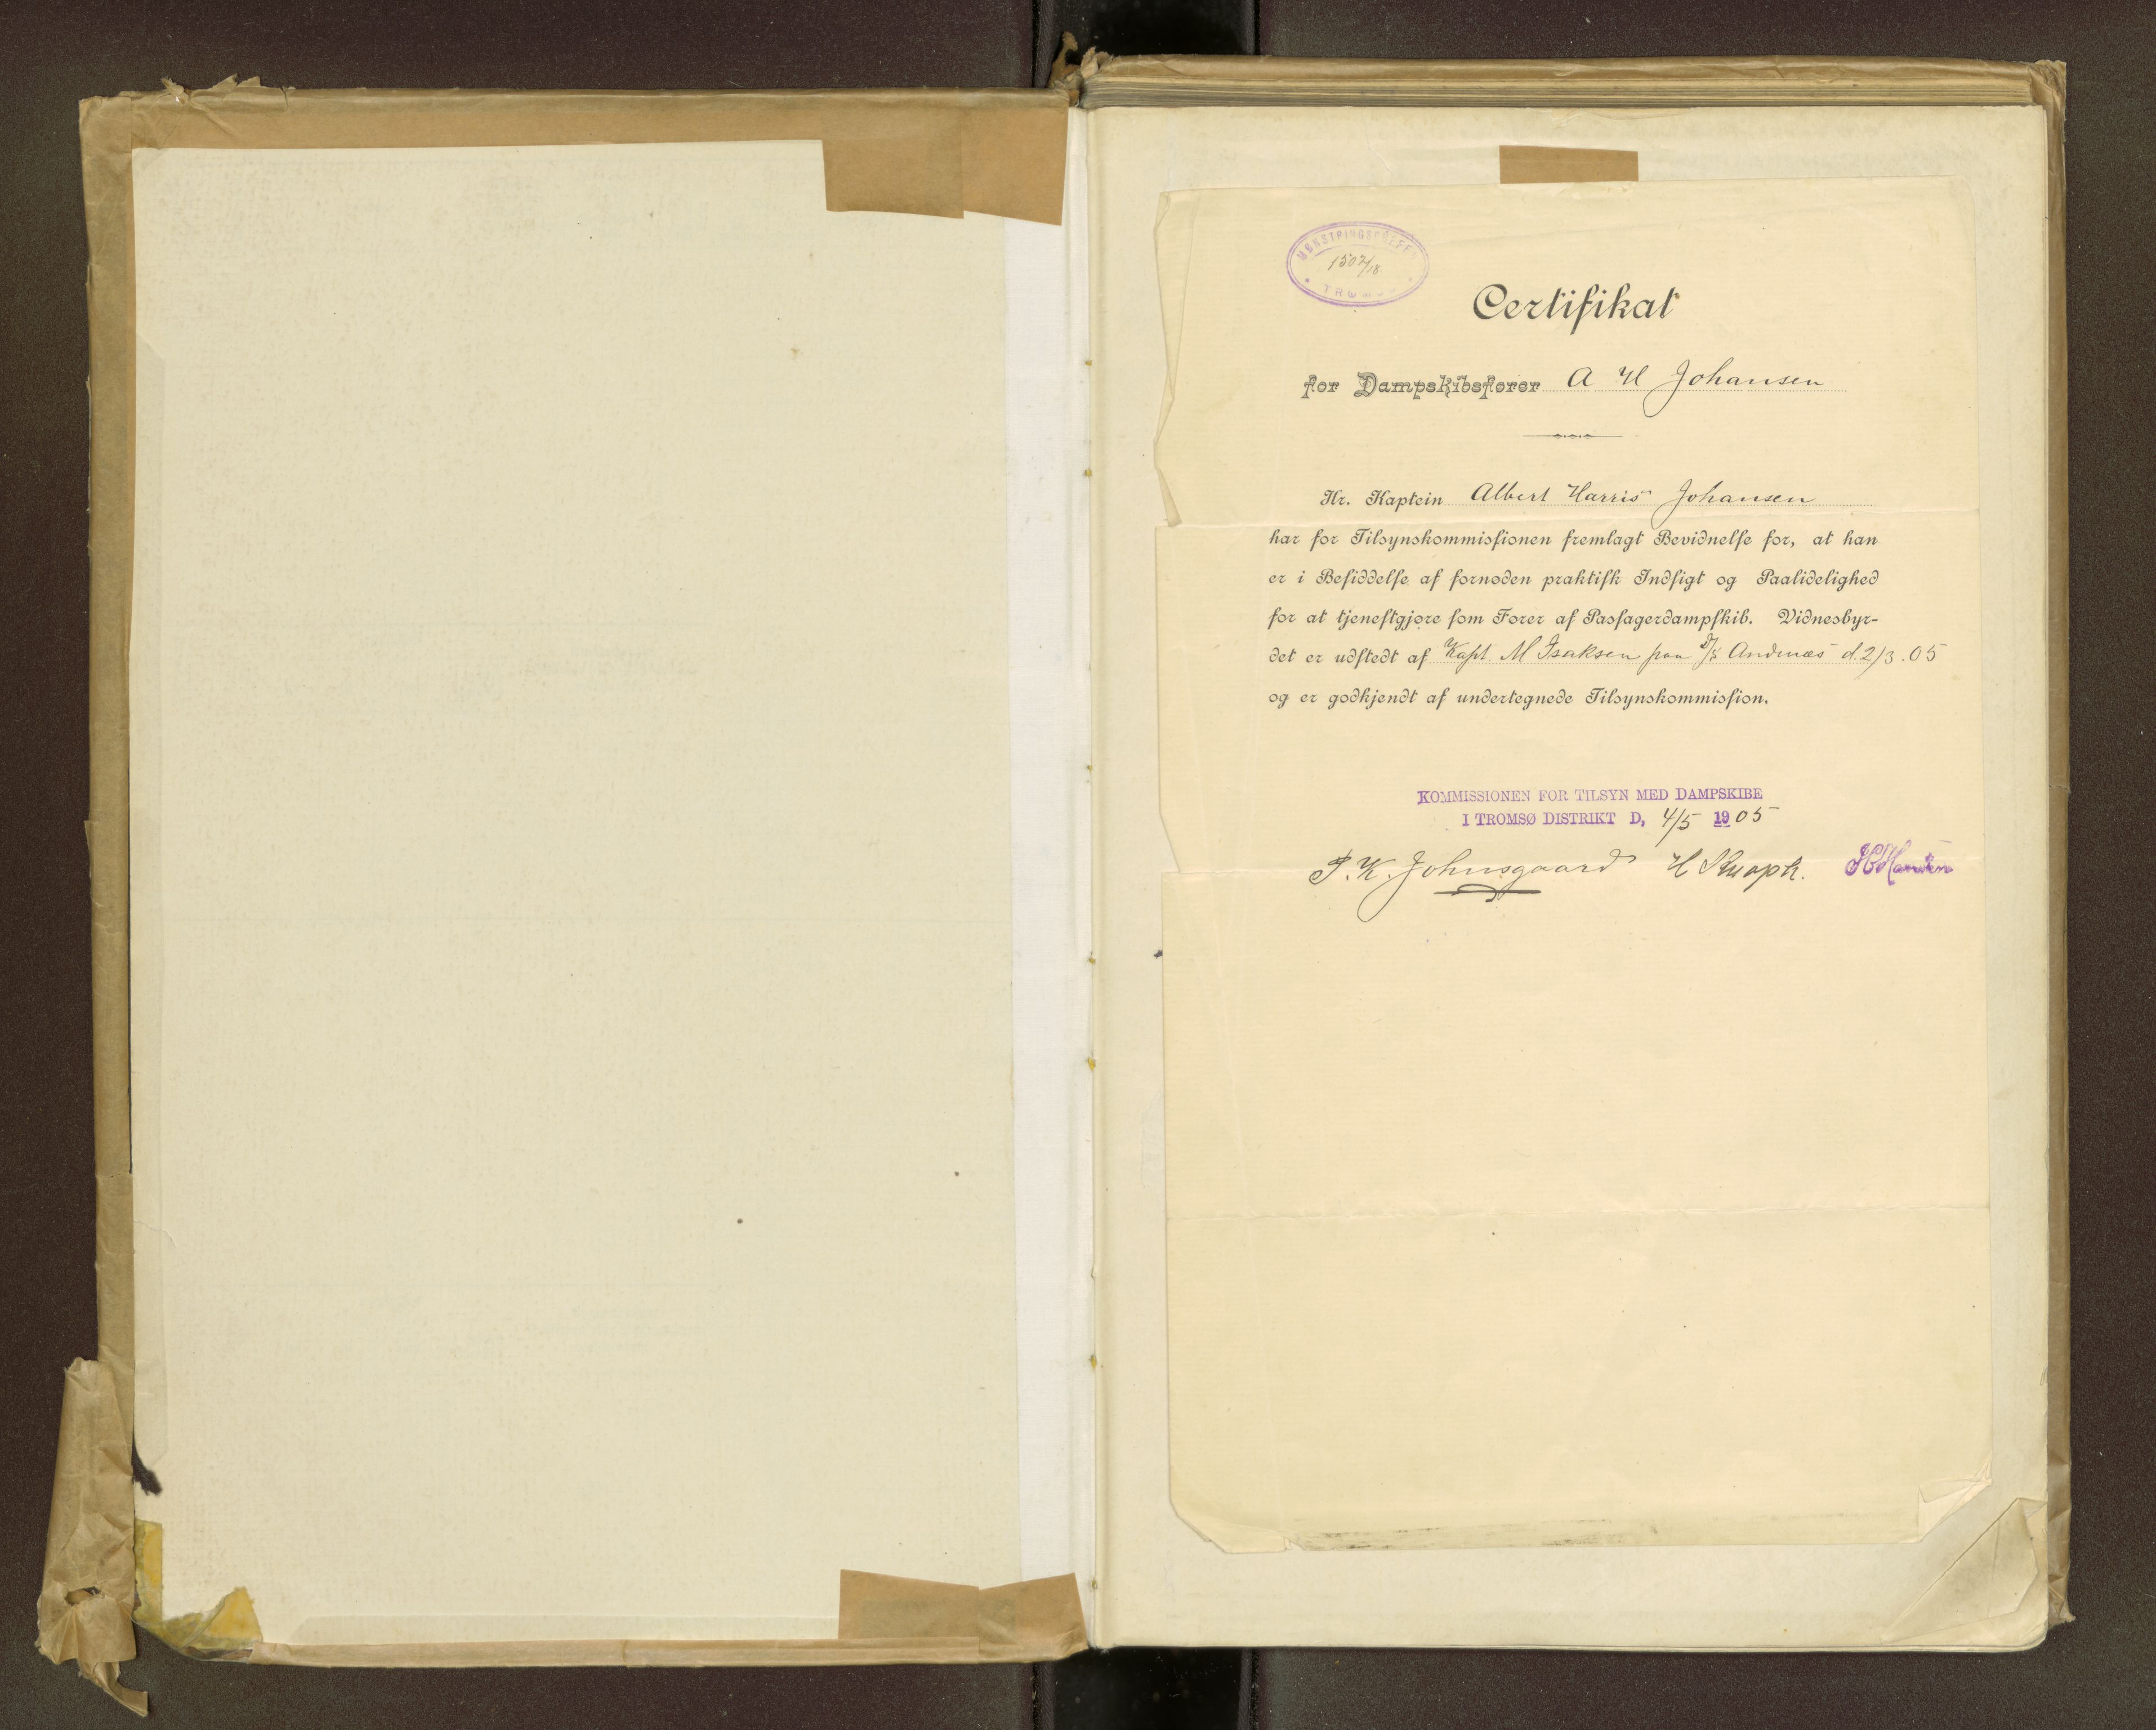 MØNSTRINGSCHEFEN
1507/18
TROMSØ
Certifikat
for Dampskibsfører A H Johansen
Hr. Kaptein Albert Harris Johansen
har for Tilsynskommissionen fremlagt Bevidnelse for, at han
er i Besiddelse af fornøden praktisk Indsigt og Paalidelighed
for at tjenestgjøre som Fører af Passagerdampskib. Vidnesbyr-
det er udstedt af Kapt. M Isaksen paa D/S Andenæs d. 2/3.05
og er godkjendt af undertegnede Tilsynskommission.
KOMMISSIONEN FOR TILSYN MED DAMPSKIBE
I TROMSØ DISTRIKT D, 4/5 1905
P. K. Johnsgaard H Knoph. Hansen